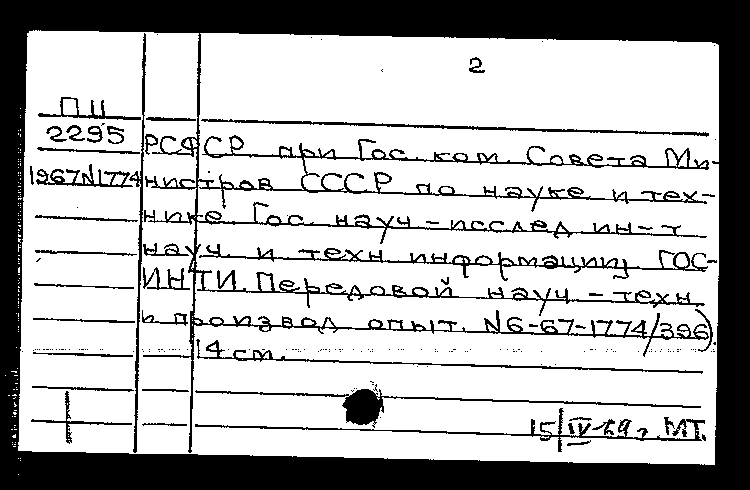 2
П II
2295 РСФСР при Гос. ком. Совета Ми-
1967 N1774 нистров СССР по науке и тех-
нике. Гос. науч-исслед ин-т
науч. и техн информации ГОС-
ИНТИ. Передовой науч-техн.
и производ опыт. N6-67-1774/396).
14 см.
15/IV-69 г. МТ.